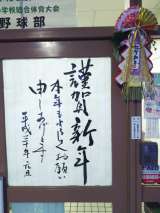 学校総合体育大会
野球部
謹賀新年
本年もよろしくお願い
申しあげます
平成二十年 元旦